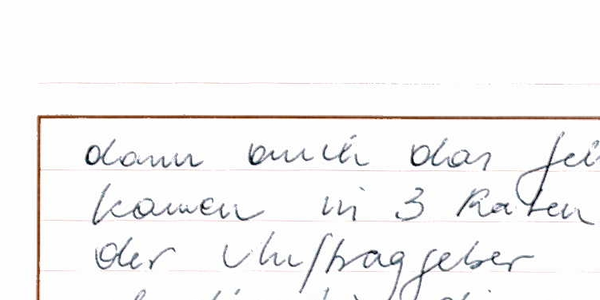 dann auch das
kamen in 3 Raten
der Auftraggeber